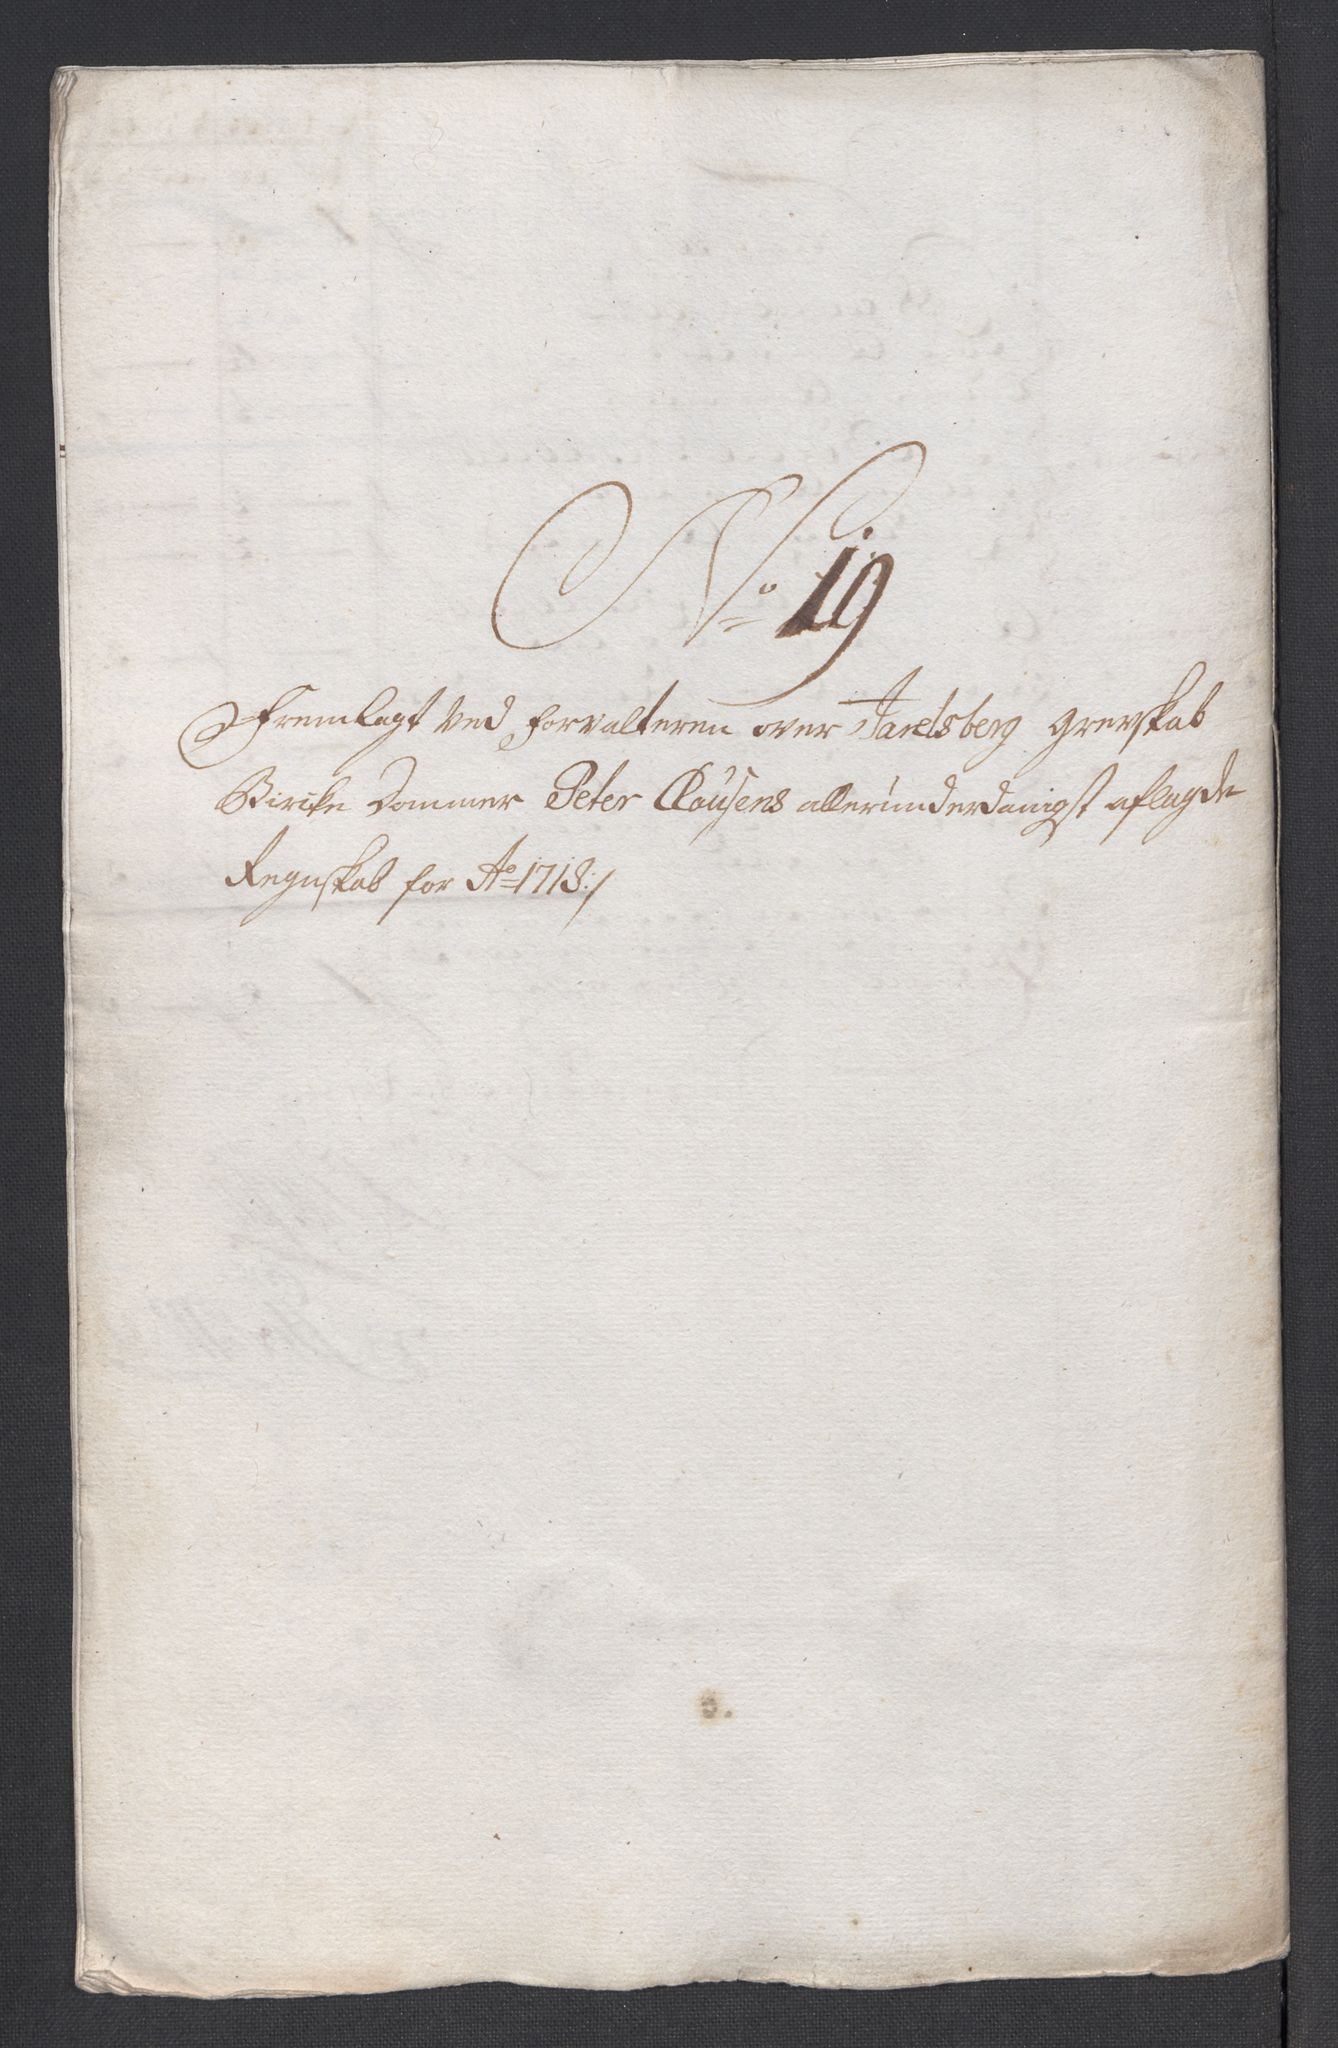 No 19
Fremlagt ved forvalteren over Jarelsberg grevskab
Bircke Dommer Peter Clausens allerunderdanigst aflagde
Regnskab for Ao 1718:/